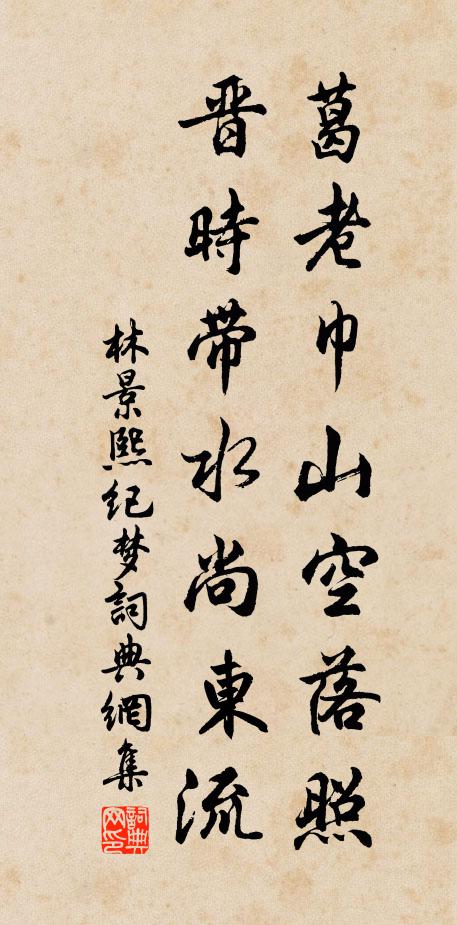 葛老巾山空落照
晋時带水尚東流
林景熙纪梦詞典網集
詞典网印